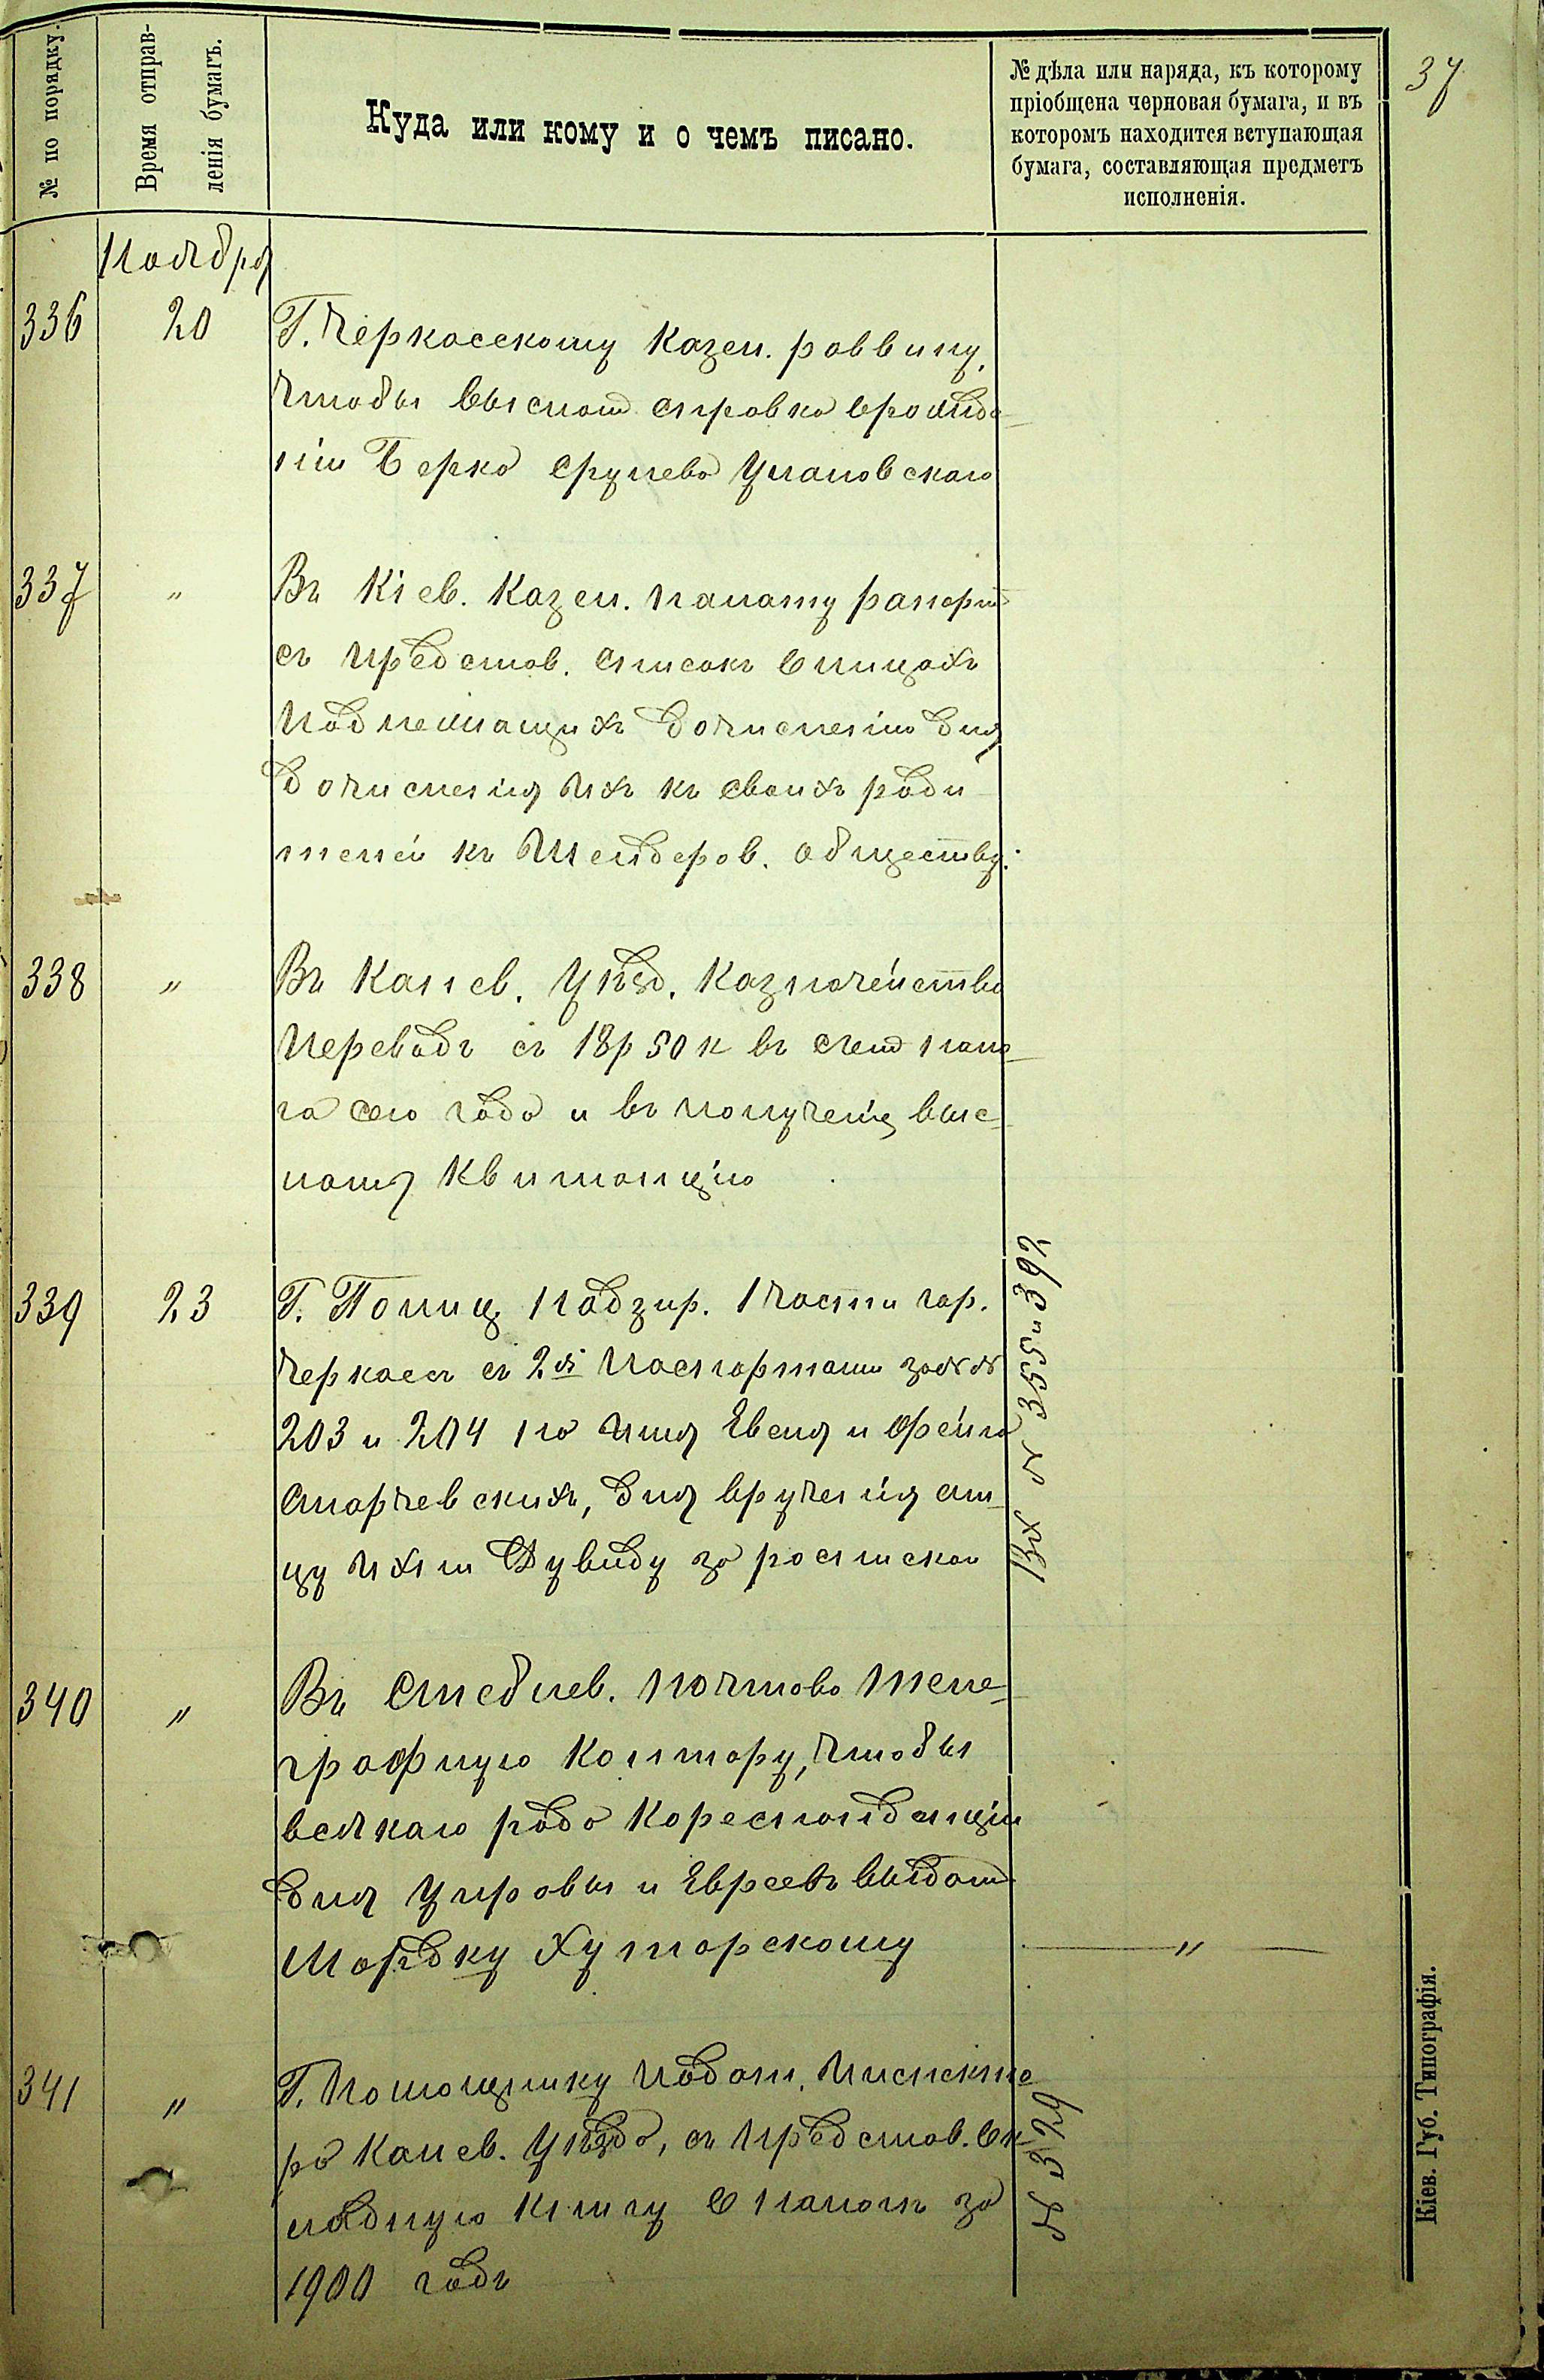 37
№ по порядку.
Время отправ-
ленія бумагъ.
Куда или кому и о чемъ писано.
№ дѣла или наряда, къ которому
пріобщена черновая бумага, и въ
которомъ находится вступающая
бумага, составляющая предметъ
исполненія.
Ноября
336 20 Г. Черкасскому Казен. раввину,
чтобы выслат справка врожде-
ніи Берка Срулева Улановскаго
337 " Въ Кіев. Казен. палату рапорт
съ представ. списокъ влицахъ
подлежащихъ дочисленію для
дочисленія ихъ къ своихъ роди
телей къ Шендеров. обществу.
338 " Въ Канев. Уѣзд. Казначейство
переводъ съ 18р 50 к въ счет нало-
га сего года и въ полученіи выс-
лать квитанцію
339 23 Г. Полиц Надзир. 1 части гор.
Черкасъ съ 2й паспортами за№№
203 и 204 на имя Евеля и Фейга
Смарчевскихъ, для врученія от-
цу ихъ Дувиду за роспиской
Вх № 355 и 392
340 " Въ Стеблев. почтово теле-
графную контору, чтобы
всякаго рода кореспонденціи
для Управы и Евреевъ выдат
Мордку Хуторскому
"
341 " Г. Помощнику подат. Инспекто
ра Канев. Уѣзда, съ представ. ок
ладную книгу о налогъ за
1900 годъ
№ 329
Кіев. Губ. Типографія.